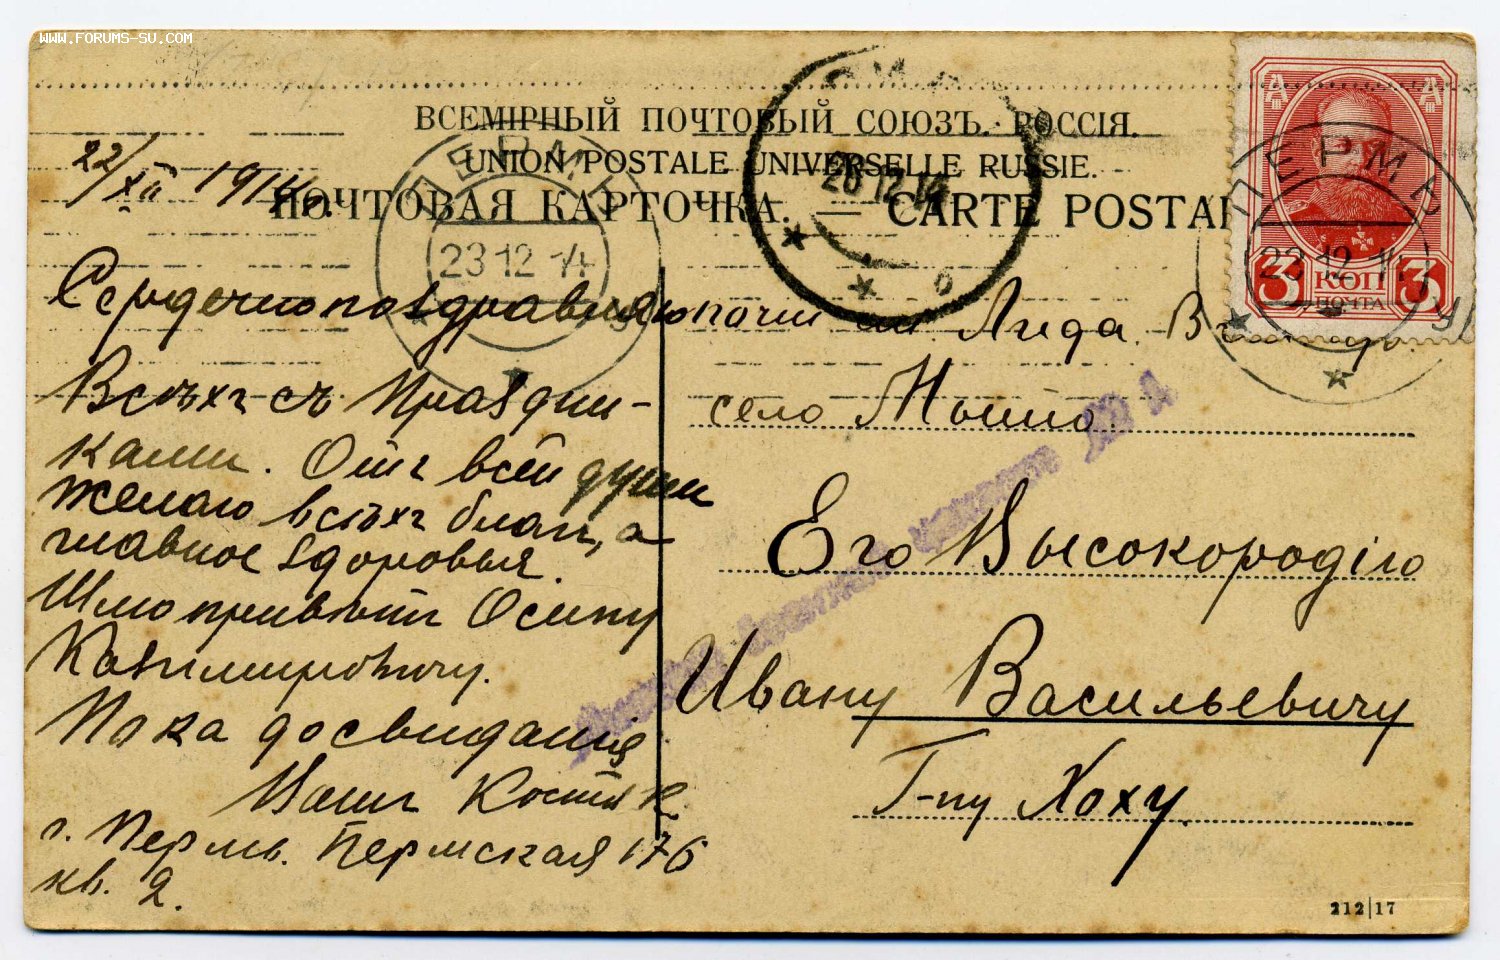 WWW.FORUMS-SU.COM
ВСЕМІРНЫЙ ПОЧТОВЫЙ СОЮЗЪ. РОССІЯ.
UNION POSTALE UNIVERSELLE RUSSIE.
ПОЧТОВАЯ КАРТОЧКА. — CARTE POSTAL
22/XII 1914
ПЕРМЬ
23 12 14
26 12 14
ПЕРМЬ
23 12 14
3 КОП 3
ПОЧТА
Сердечно поздравляю
Всѣхъ съ Праздни-
ками. Отъ всей души
желаю всѣхъ благ, а
главное здоровья.
Шлю привѣтъ Осипу
Казимировичу.
Пока досвиданія
Вашъ Костя К
г. Пермь. Пермская 176
кв. 2.
почт ст. Лида. В
село Мыто.
Его Высокородію
Ивану Васильевичу
Г-ну Хоху.
212|17